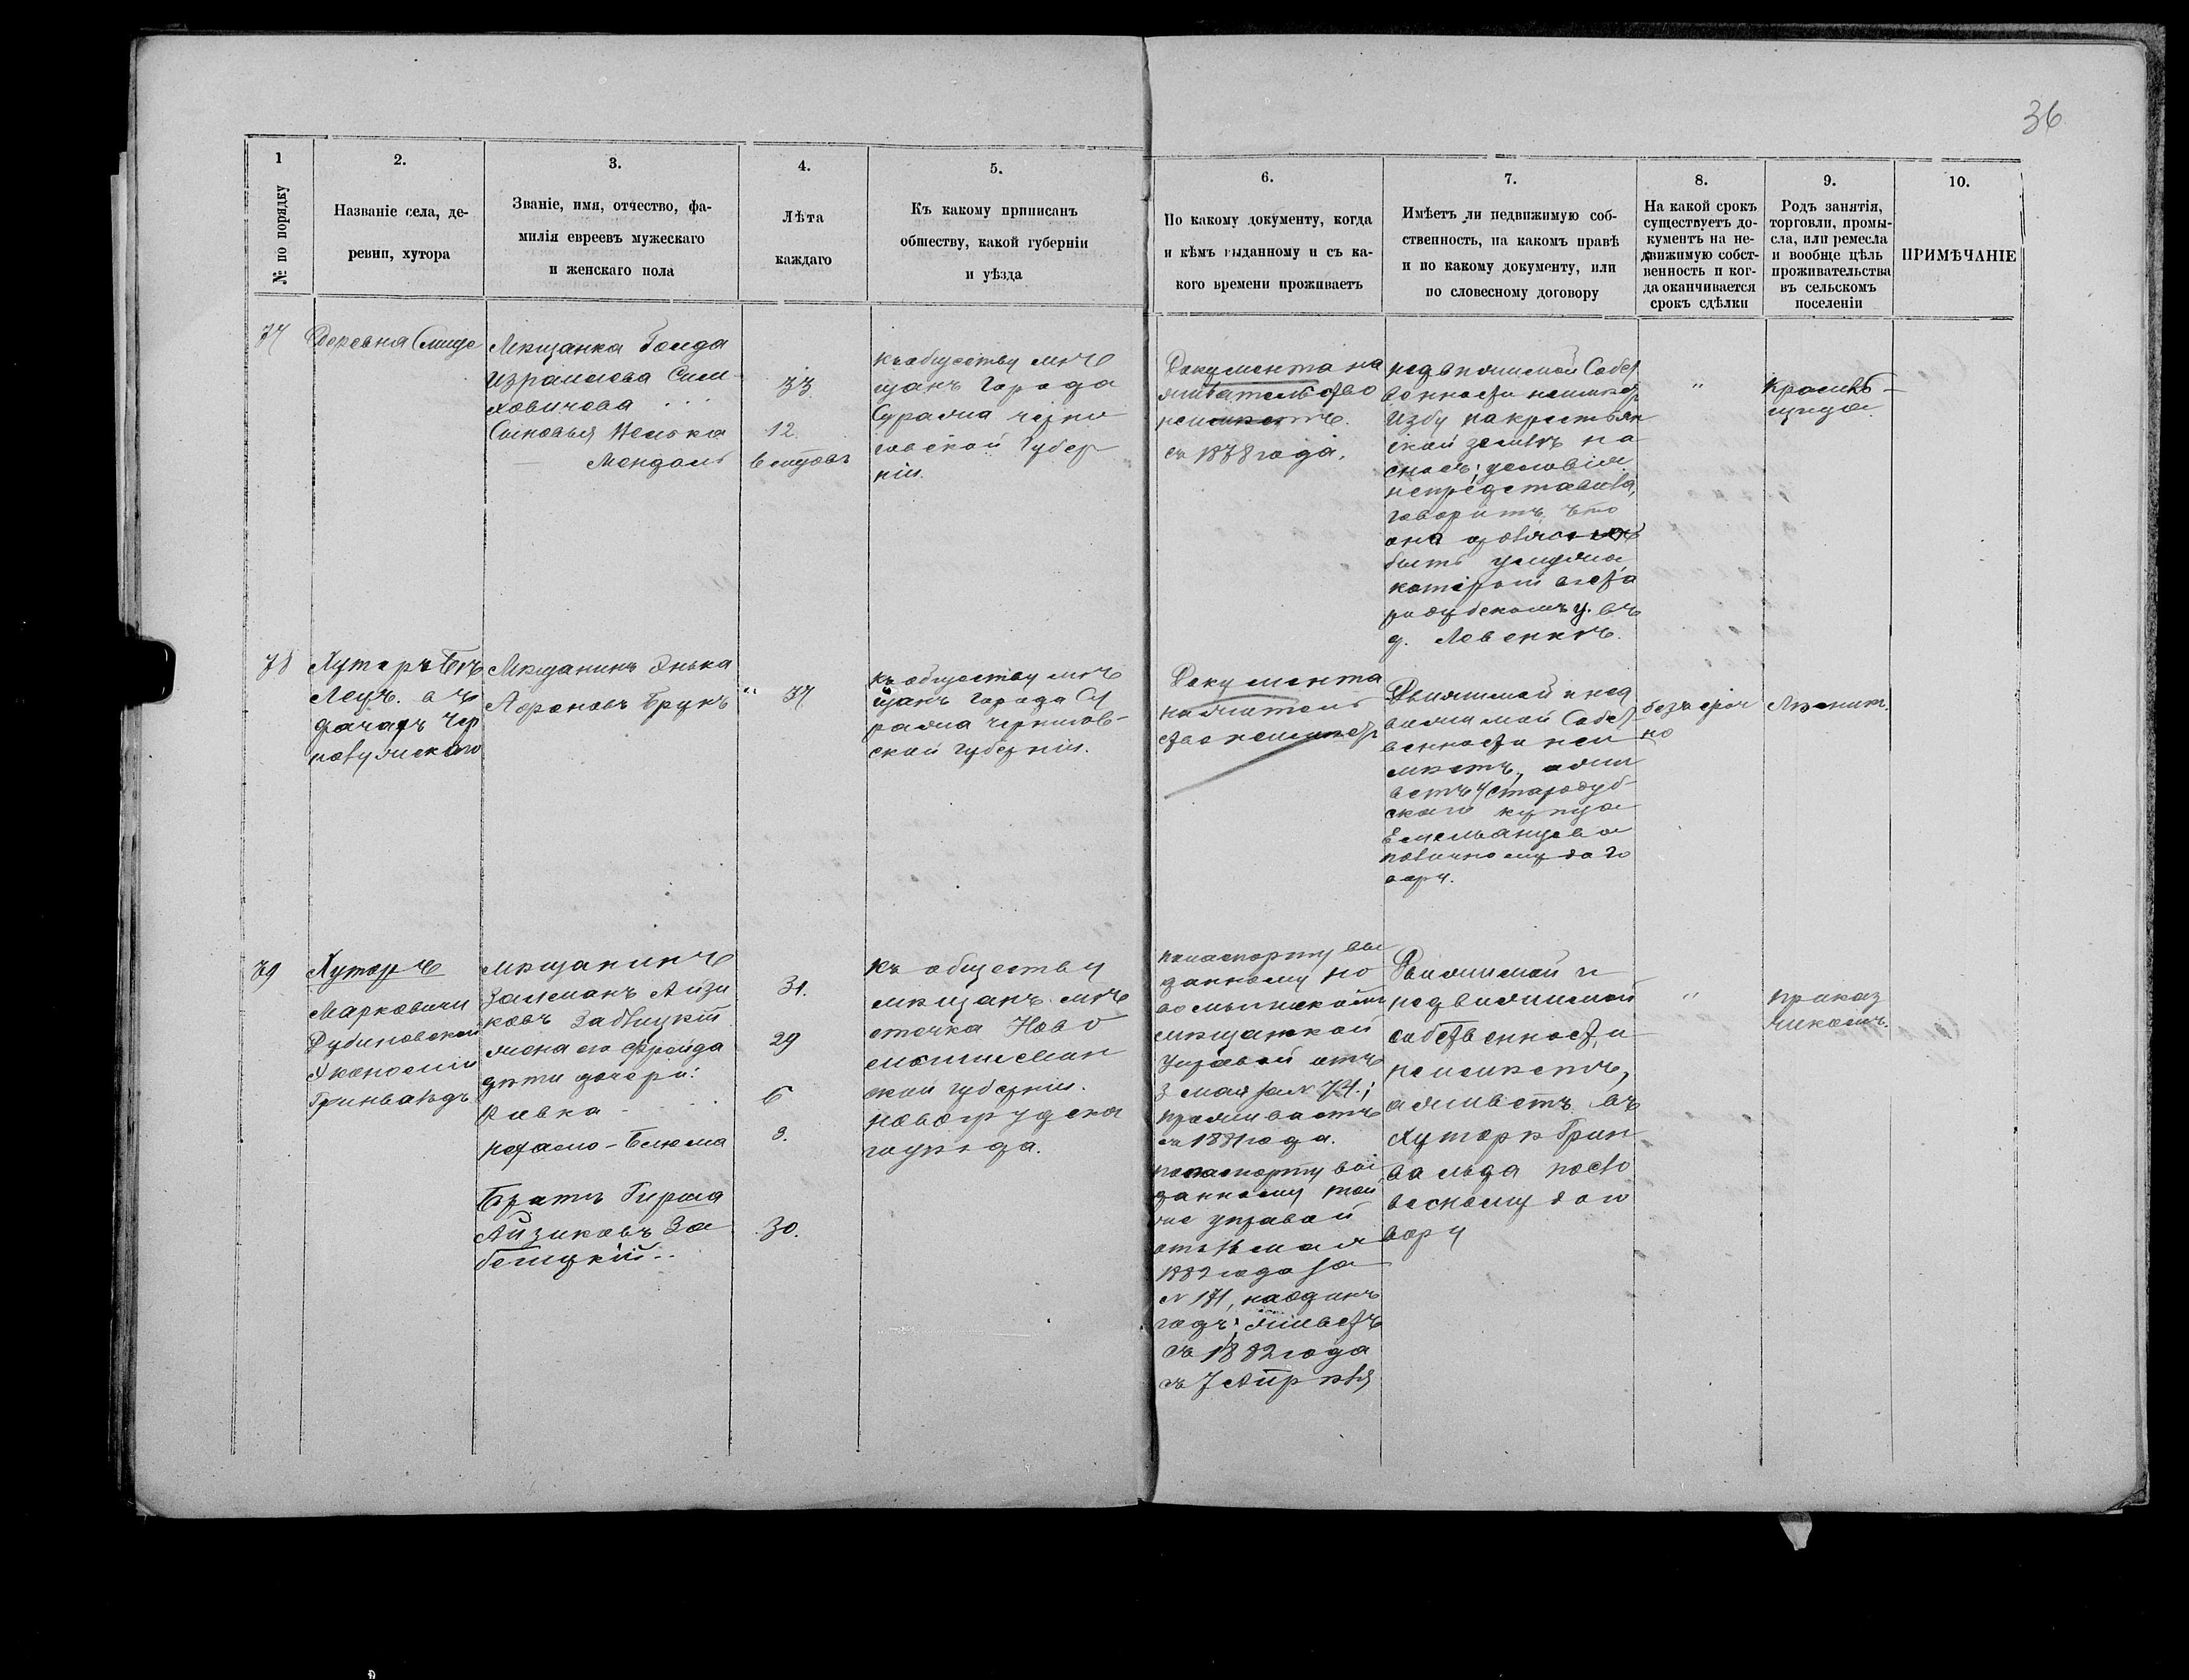 36
1
№ по порядку
2.
Названіе села, де-
ревни, хутора
3.
Званіе, имя, отчество, фа-
милія евреевъ мужескаго
и женскаго пола
4.
Лѣта
каждаго
5.
Къ какому приписанъ
обществу, какой губерніи
и уѣзда
6.
По какому документу, когда
и кѣмъ выданному и съ ка-
кого времени проживаетъ
7.
Имѣетъ ли недвижимую соб-
ственность, на какомъ правѣ
и по какому документу, или
по словесному договору
8.
На какой срокъ
существуетъ до-
кументъ на не-
движимую собст-
венность и ког-
да оканчивается
срокъ сдѣлки
9.
Родъ занятія,
торговли, промы-
сла, или ремесла
и вообще цѣль
проживательства
въ сельскомъ
поселеніи
10.
ПРИМѢЧАНІЕ
77
Деревня
Мѣщанка
Израилева
Сыновья
Мендель
33
12
къ обществу мѣ
щанъ города
Суража черни
говской Губер
ніи.
Документа на
жительство
неимѣетъ.
съ 1878 года.
недвижимой Собст
венности неимѣет
избу на крестьян
ской землѣ на
условія
непредставила,
говоритъ что
быть у мужа
который въ Ста
родубскомъ у. въ
д.
"
78
Хуторъ
въ
дачахъ
Мѣщанинъ
Ароновъ Брукъ
" 37
къ обществу мѣ
щанъ города Су
ража чернигов-
ской губерніи.
Документа
на житель
ство неимѣет
Движимой и нед
вижимой Собст
венности неи
мѣетъ, а жи
ветъ у Стародуб-
скаго купца
Емельянцева
по личному дого
вору.
безъ сроч
но
79
Хуторъ
Марковичи
Экономіи
Гринвальдъ
мѣщанинъ
Залманъ Айзи
ковъ Забѣлицкій
жена его Фрейда
дѣти дочери:
Ривка
Братъ Гирша
Айзиковъ За
бѣлицкій..
31.
29
6
3.
30.
Къ обществу
мѣщанъ мѣ
стечка Ново
мыши Мин
ской губерніи.
новогрудска
го уѣзда.
по паспорту вы
данному но
вомышской
мѣщанской
Управой отъ
3 мая за № 74.;
проживаетъ
съ 1881 года.
по паспорту вы
данному той
же управой
отъ мая
1882 года за
№ 171, на одинъ
годъ; живетъ
съ 1882 года
съ 7 Апрѣля
Движимой и
недвижимой
собственности
неимѣетъ,
а живетъ въ
хуторѣ Грин
вальда по сло
весному дого
вору
"
приказ
чикомъ.